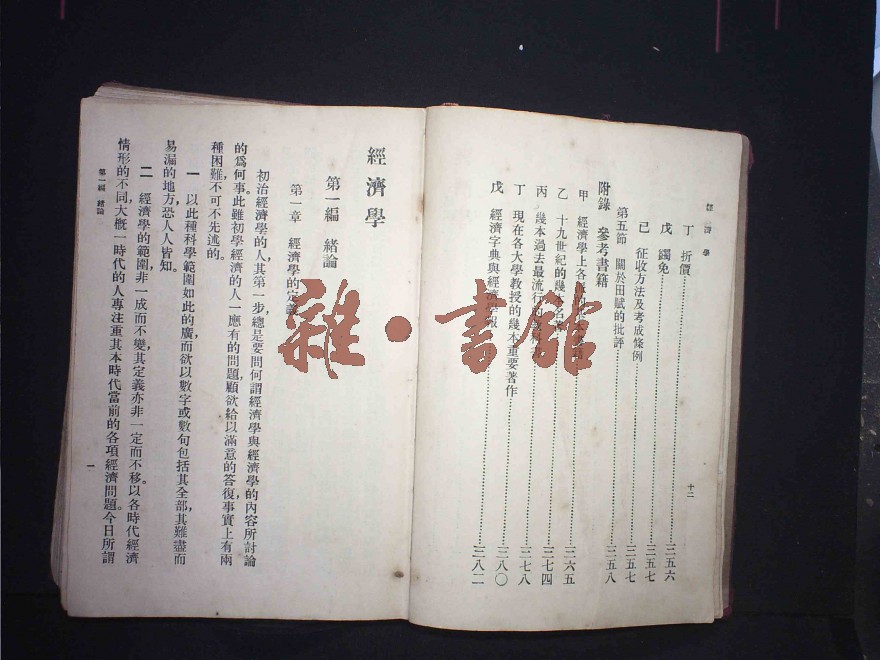 經濟學
丁 折價 三五六
戊 蠲免 三五七
己 征收方法及考成條例 三五七
第五節 關於田賦的批評 三五八
附錄 參考書籍
甲 經濟學上各 三六五
乙 十九世紀的幾 名著 三七四
丙 幾本過去最流行的 三七八
丁 現在各大學教授的幾本重要著作 三八〇
戊 經濟字典與經濟學報 三八二
十二
經濟學
第一編 緒論
第一章 經濟學的定義
初治經濟學的人,其第一步,總是要問何謂經濟學與經濟學的內容所討論
的爲何事。此雖初學經濟的人一應有的問題,顧欲給以滿意的答復,事實上有兩
種困難,不可不先述的。
一 以此種科學範圍如此的廣,而欲以數字或數句包括其全部,其難盡而
易漏的地方,恐人人皆知。
二 經濟學的範圍,非一成而不變,其定義亦非一定而不移。以各時代經濟
情形的不同,大概一時代的人專注重其本時代當前的各項經濟問題。今日所謂
第一編 緒論
一
雜·書館